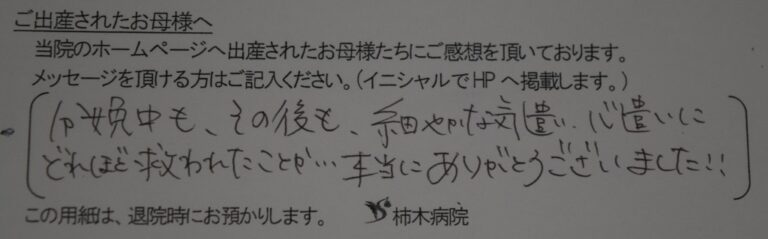 ご出産されたお母様へ
当院のホームページへ出産されたお母様たちにご感想を頂いております。
メッセージを頂ける方はご記入ください。(イニシャルでHPへ掲載します。)
分娩中も、その後も、細やかな気遣い、心遣いに
どれほど救われたことか…本当にありがとうございました!!
この用紙は、退院時にお預かりします。 柿木病院